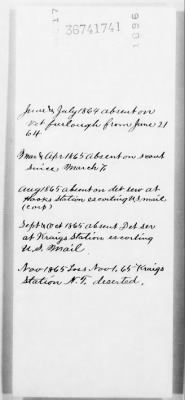 17
36741741
1696
June & July 1864 absent on
Vet furlough from June 21
64.
Mar & Apr 1865 absent on scout
since March 7.
Aug 1865 absent on det serv at
Hooks Station escorting U.S. mail
(Corp)
Sept & Oct 1865 absent Det ser
at Kraigs Station escorting
U.S. Mail
Nov 1865 Loss Nov 1, 65 Kraigs
Station N.T. deserted.